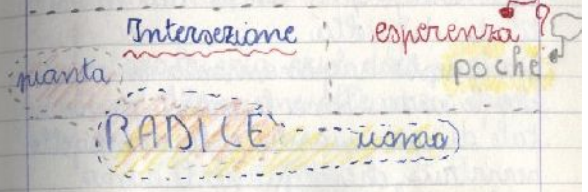 Intersezione esperenza ?
pianta poche
RADICE uomo